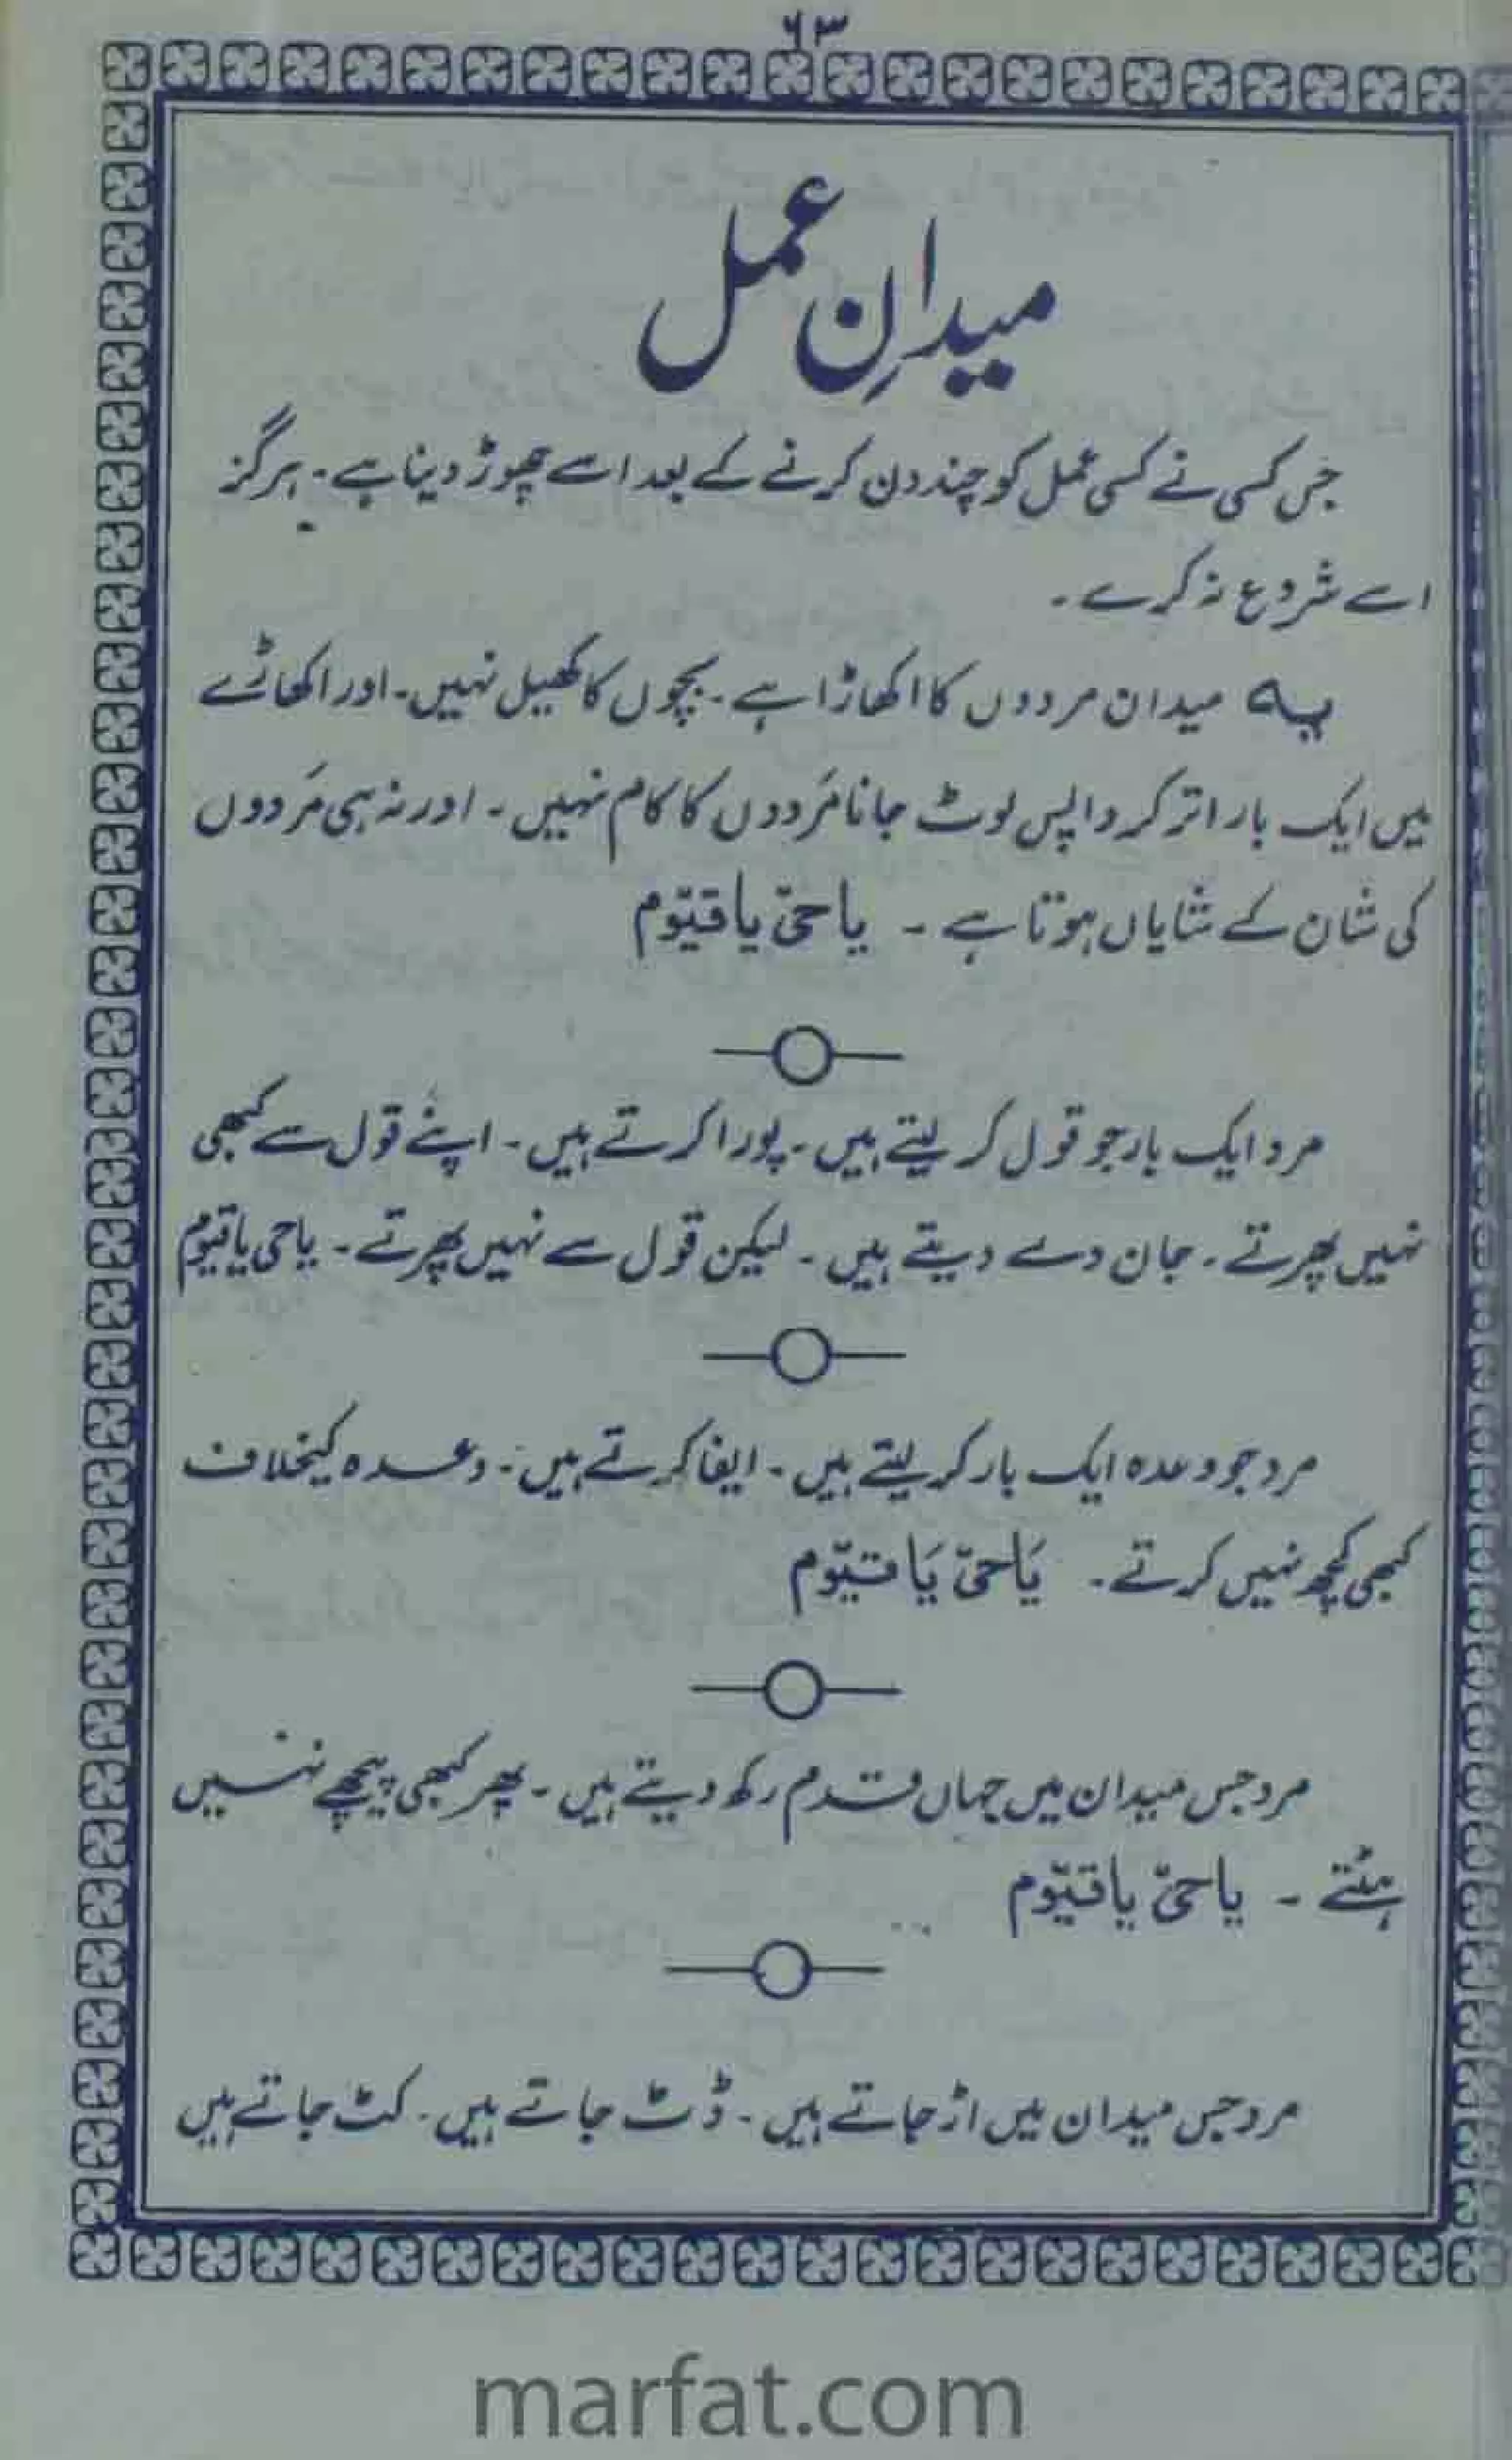 ۶۳
میدانِ عمل
جس کسی نے کسی عمل کو چند دن کرنے کے بعد اسے چھوڑ دینا ہے۔ ہرگز
اسے شروع نہ کرے۔
یہ میدان مردوں کا اکھاڑا ہے۔ بچوں کا کھیل نہیں۔ اور اکھاڑے
میں ایک بار اتر کر واپس لوٹ جانا مَردوں کا کام نہیں۔ اور نہ ہی مَردوں
کی شان کے شایاں ہوتا ہے۔ یا حیّ یا قیّوم
مرد ایک بار جو قول کر لیتے ہیں۔ پورا کرتے ہیں۔ اپنے قول سے کبھی
نہیں پھرتے۔ جان دے دیتے ہیں۔ لیکن قول سے نہیں پھرتے۔ یا حی یا قیوم
مرد جو وعدہ ایک بار کر لیتے ہیں۔ ایفا کرتے ہیں۔ وعدہ کیخلاف
کبھی کچھ نہیں کرتے۔ یَا حیّ یَا قیّوم
مرد جس میدان میں جہاں قدم رکھ دیتے ہیں۔ پھر کبھی پیچھے نہیں
ہٹتے۔ یا حیّ یا قیّوم
مرد جس میدان میں اڑ جاتے ہیں۔ ڈٹ جاتے ہیں۔ کٹ جاتے ہیں
marfat.com